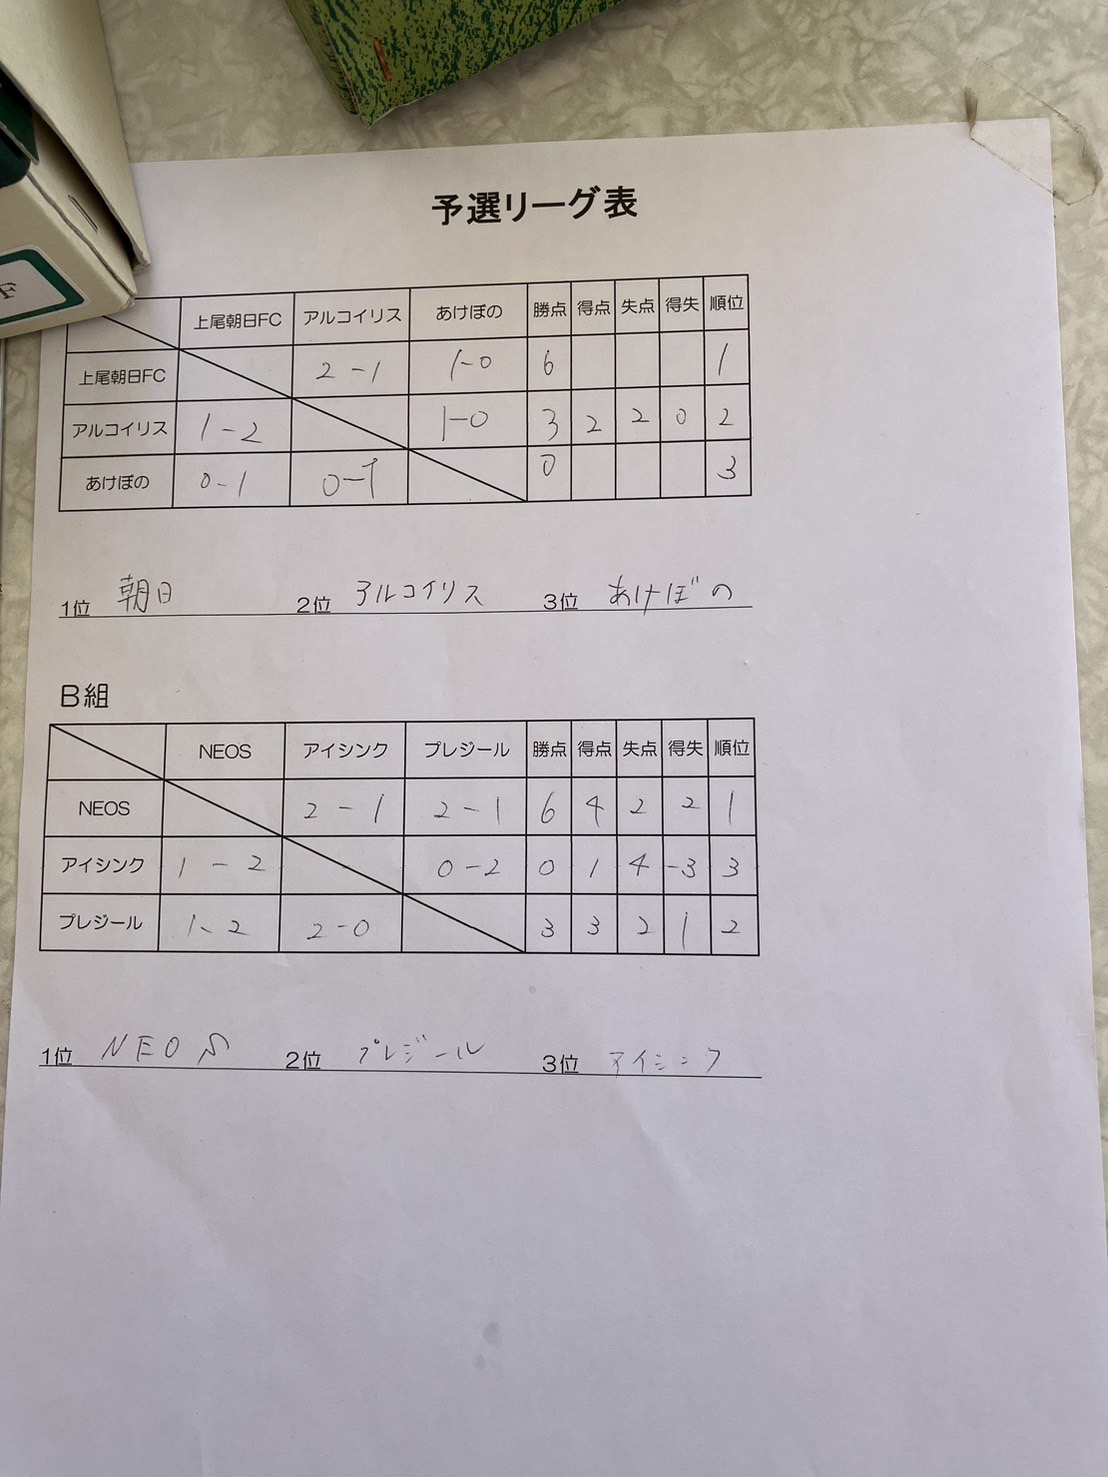 F
予選リーグ表
上尾朝日FC アルコイリス あけぼの 勝点 得点 失点 得失 順位
上尾朝日FC 2-1 1-0 6 1
アルコイリス 1-2 1-0 3 2 2 0 2
あけぼの 0-1 0-1 0 3
1位 朝日 2位 アルコイリス 3位 あけぼの
B組
NEOS アイシンク プレジール 勝点 得点 失点 得失 順位
NEOS 2-1 2-1 6 4 2 2 1
アイシンク 1-2 0-2 0 1 4 -3 3
プレジール 1-2 2-0 3 3 2 1 2
1位 NEOS 2位 プレジール 3位 アイシンク